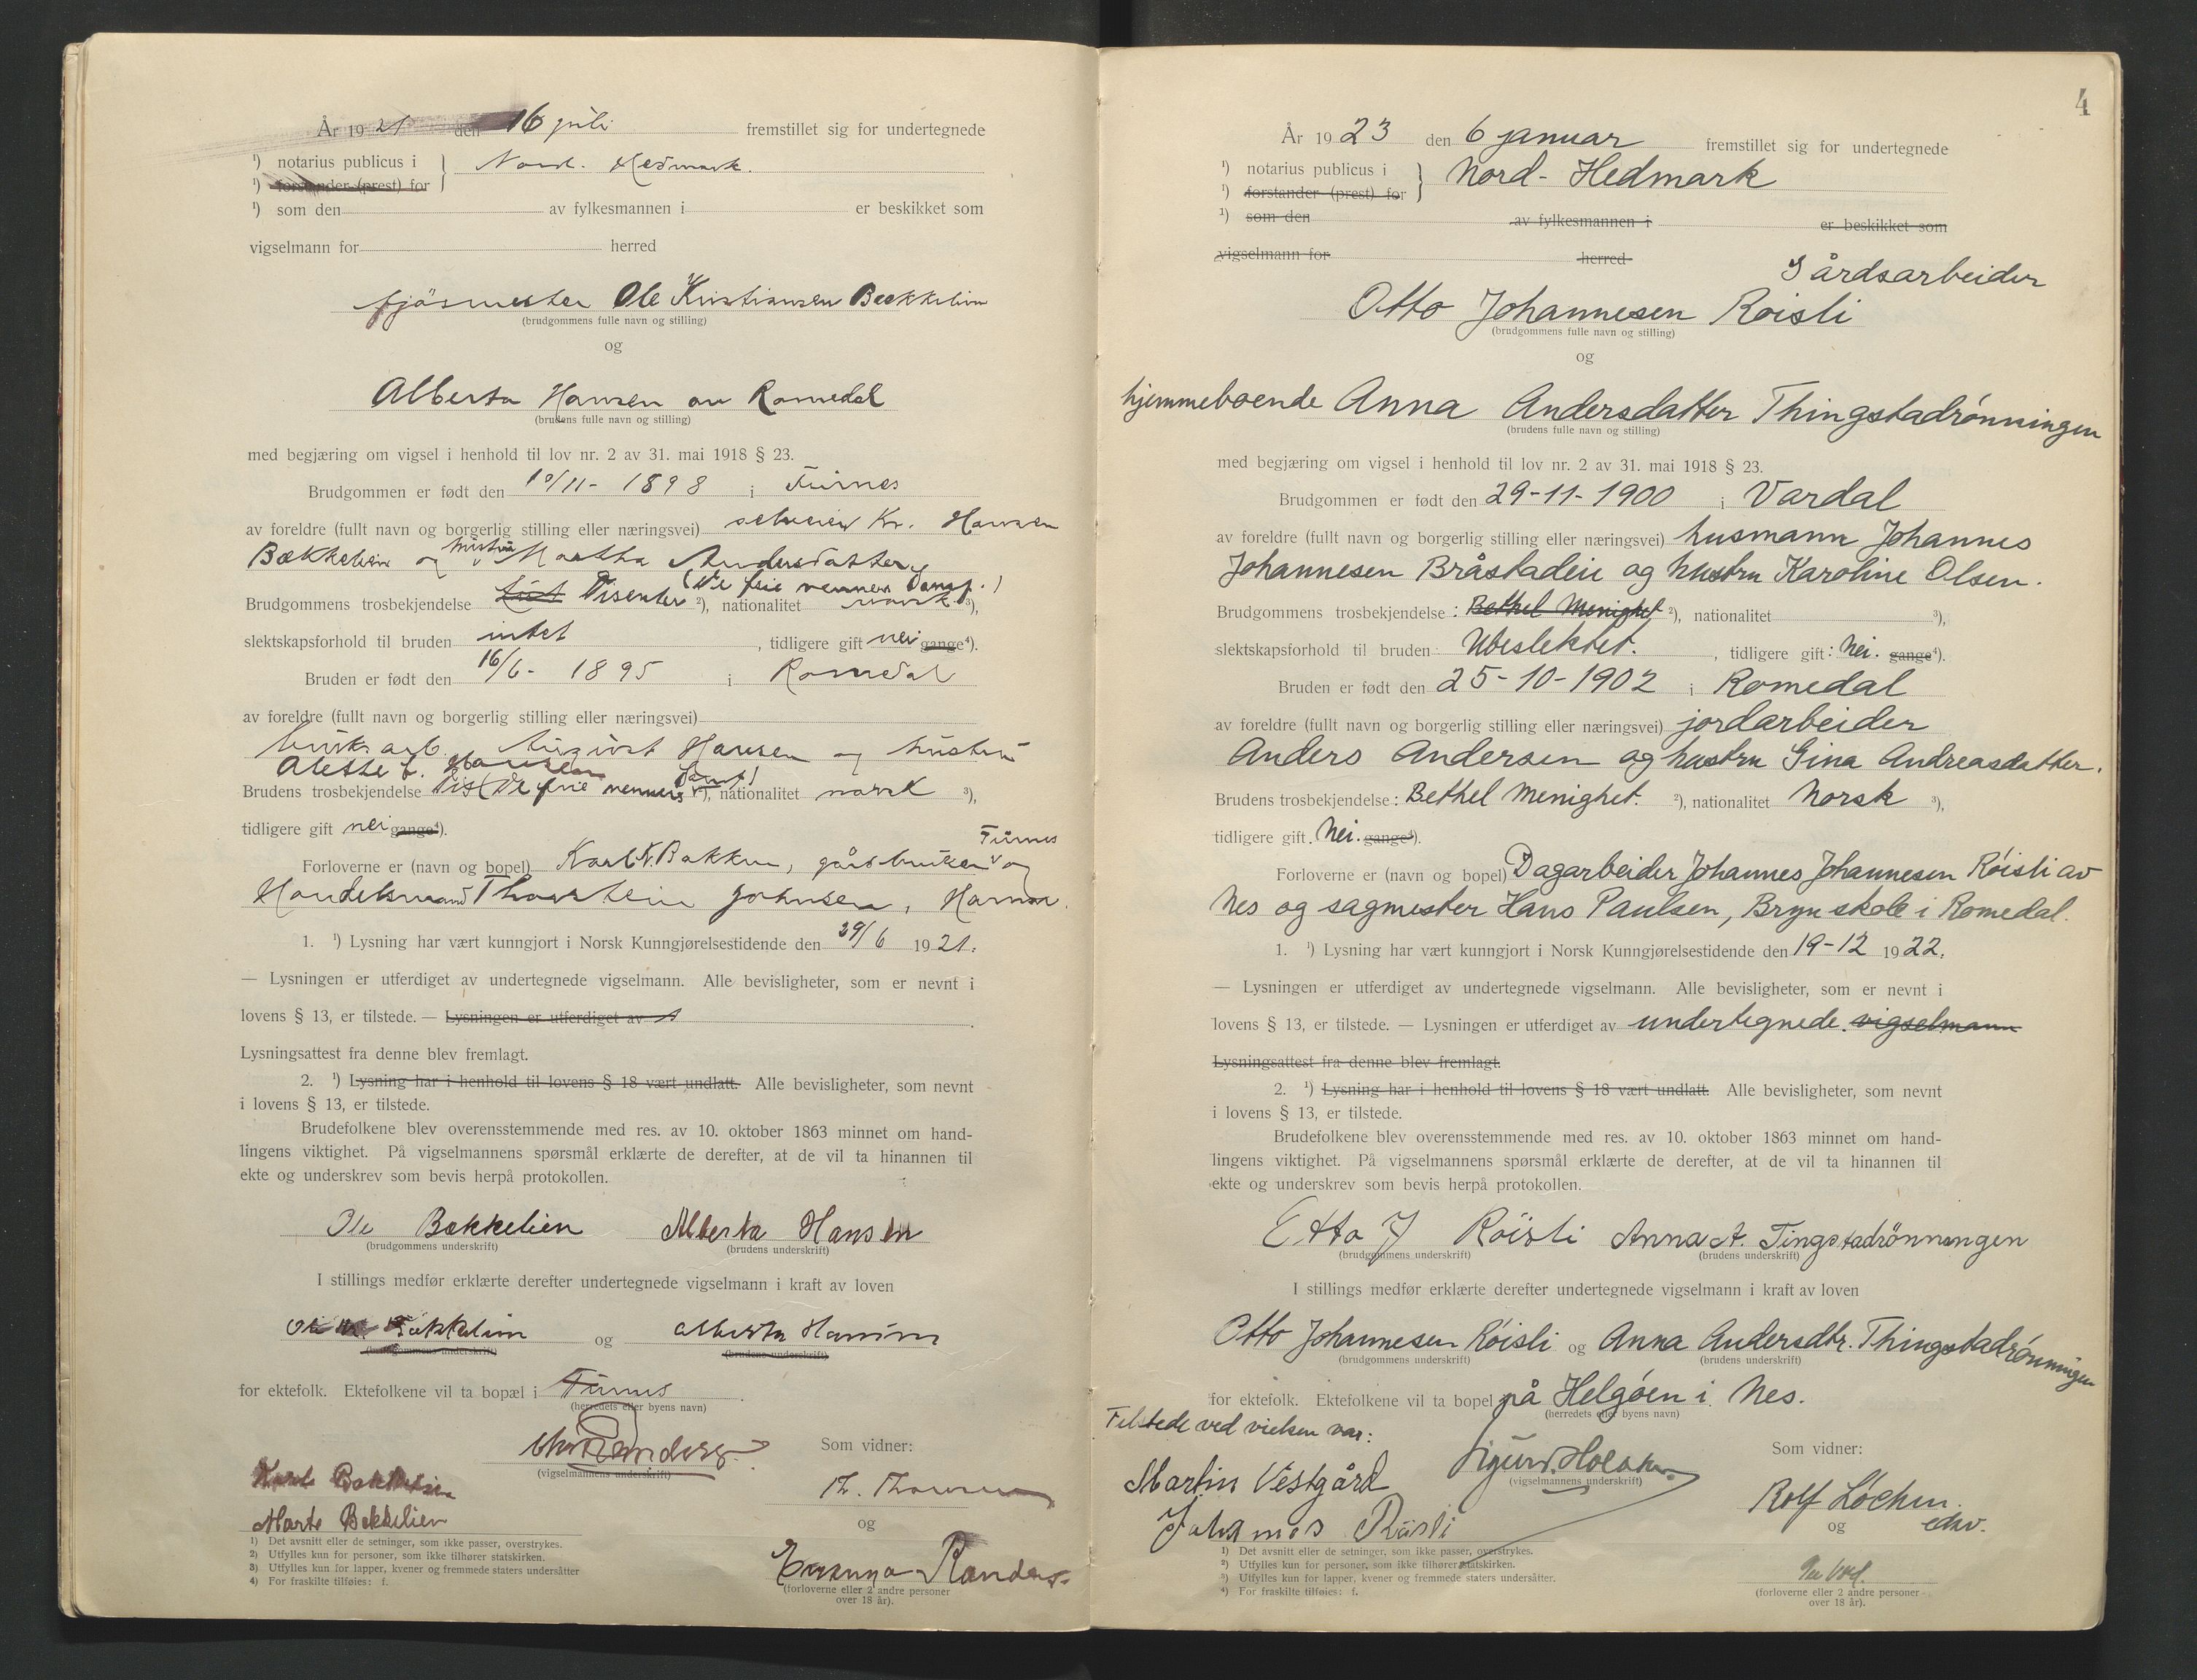 År 19 21 den 16 juli fremstillet sig for undertegnede
¹) notarius publicus i } Nord. Hedmark.
¹) forstander (prest) for
¹) som den av fylkesmannen i er beskikket som
vigselmann for herred
fjösmester Ole Kristiansen Bækkelien
(brudgommens fulle navn og stilling)
og
Alberta Hansen av Romedal
(brudens fulle navn og stilling)
med begjæring om vigsel i henhold til lov nr. 2 av 31. mai 1918 § 23.
Brudgommen er født den 10/11- 1898 i Furnes
av foreldre (fullt navn og borgerlig stilling eller næringsvei) selveier Kr. Hansen
Bækkelien og hustru Martha Andersdatter
(De frie venners samf.)
Brudgommens trosbekjendelse Disenter ²), nationalitet norsk ³),
slektskapsforhold til bruden intet , tidligere gift nei gange⁴).
Bruden er født den 16/6- 1895 i Romedal
av foreldre (fullt navn og borgerlig stilling eller næringsvei)
bruksarb. August Hansen og hustru
Alette f. Hansen
Brudens trosbekjendelse Dis (De frie venners samf) ²), nationalitet norsk ³),
tidligere gift nei gange⁴).
Furnes
Forloverne er (navn og bopel) Karl K. Bakken, gårdbruker og
Handelsmand Thorstein Johnsen, Hamar.
1. ¹) Lysning har vært kunngjort i Norsk Kunngjørelsestidende den 29/6 1921.
— Lysningen er utferdiget av undertegnede vigselmann. Alle bevisligheter, som er nevnt i
lovens § 13, er tilstede. — Lysningen er utferdiget av
Lysningsattest fra denne blev fremlagt.
2. ¹) Lysning har i henhold til lovens § 18 vært undlatt. Alle bevisligheter, som nevnt
i lovens § 13, er tilstede.
Brudefolkene blev overensstemmende med res. av 10. oktober 1863 minnet om hand-
lingens viktighet. På vigselmannens spørsmål erklærte de derefter, at de vil ta hinannen til
ekte og underskrev som bevis herpå protokollen.
Ole Bækkelien Alberta Hansen
(brudgommens underskrift) (brudens underskrift)
I stillings medfør erklærte derefter undertegnede vigselmann i kraft av loven
Ole Bækkelien og Alberta Hansen
(brudgommens underskrift) (brudens underskrift)
for ektefolk. Ektefolkene vil ta bopæl i Furnes
(herredets eller byens navn)
Som vidner:
(vigselmannens underskrift)
Karl Bækkelien
Marte Bekkelien
og
Randers
(forloverne eller 2 andre personer
over 18 år).
1) Det avsnitt eller de setninger, som ikke passer, overstrykes.
2) Utfylles kun for personer, som ikke tilhører statskirken.
3) Utfylles kun for lapper, kvener og fremmede staters undersåtter
4) For fraskilte tilføies: f.
4
År 19 23 den 6 januar fremstillet sig for undertegnede
¹) notarius publicus i } Nord-Hedmark
¹) forstander (prest) for
¹) som den av fylkesmannen i er beskikket som
vigselmann for herred
Gårdsarbeider
Otto Johannesen Röisli
(brudgommens fulle navn og stilling)
og
hjemmeboende Anna Andersdatter Thingstadrönningen
(brudens fulle navn og stilling)
med begjæring om vigsel i henhold til lov nr. 2 av 31. mai 1918 § 23.
Brudgommen er født den 29-11-1900 i Vardal
av foreldre (fullt navn og borgerlig stilling eller næringsvei) husmann Johannes
Johannesen Bråstadeie og hustru Karoline Olsen.
Brudgommens trosbekjendelse: Bethel Menighet ²), nationalitet ³),
slektskapsforhold til bruden Ubeslektet. , tidligere gift: Nei. gange⁴).
Bruden er født den 25-10-1902 i Romedal
av foreldre (fullt navn og borgerlig stilling eller næringsvei) jordarbeider
Anders Andersen og hustru Gina Andreasdatter.
Brudens trosbekjendelse: Bethel Menighet. ²), nationalitet Norsk ³),
tidligere gift. Nei. gange⁴).
Forloverne er (navn og bopel) Dagarbeider Johannes Johannesen Röisli av
Nes og sagmester Hans Paulsen, Bryn skole i Romedal.
1. ¹) Lysning har vært kunngjort i Norsk Kunngjørelsestidende den 19-12 1922.
— Lysningen er utferdiget av undertegnede vigselmann. Alle bevisligheter, som er nevnt i
lovens § 13, er tilstede. — Lysningen er utferdiget av undertegnede. vigselmann
Lysningsattest fra denne blev fremlagt.
2. ¹) Lysning har i henhold til lovens § 18 vært undlatt. Alle bevisligheter, som nevnt
i lovens § 13, er tilstede.
Brudefolkene blev overensstemmende med res. av 10. oktober 1863 minnet om hand-
lingens viktighet. På vigselmannens spørsmål erklærte de derefter, at de vil ta hinannen til
ekte og underskrev som bevis herpå protokollen.
Otto J Röisli Anna A. Tingstadrönningen
(brudgommens underskrift) (brudens underskrift)
I stillings medfør erklærte derefter undertegnede vigselmann i kraft av loven
Otto Johannesen Röisli og Anna Andersdtr. Thingstadrönningen
(brudgommens underskrift) (brudens underskrift)
for ektefolk. Ektefolkene vil ta bopel på Helgöen i Nes.
(herredets eller byens navn)
Tilstede ved vielsen var:
Martin Vestgård
Johannes Röisli
Sigurd
(vigselmannens underskrift)
Som vidner:
Rolf Löchen
og
(forloverne eller 2 andre personer
over 18 år).
1) Det avsnitt eller de setninger, som ikke passer, overstrykes.
2) Utfylles kun for personer, som ikke tilhører statskirken.
3) Utfylles kun for lapper, kvener og fremmede staters undersåtter.
4) For fraskilte tilføies: f.